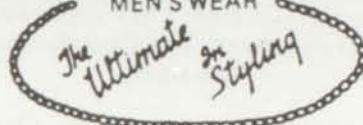 MEN'S WEAR
The Ultimate
In Styling